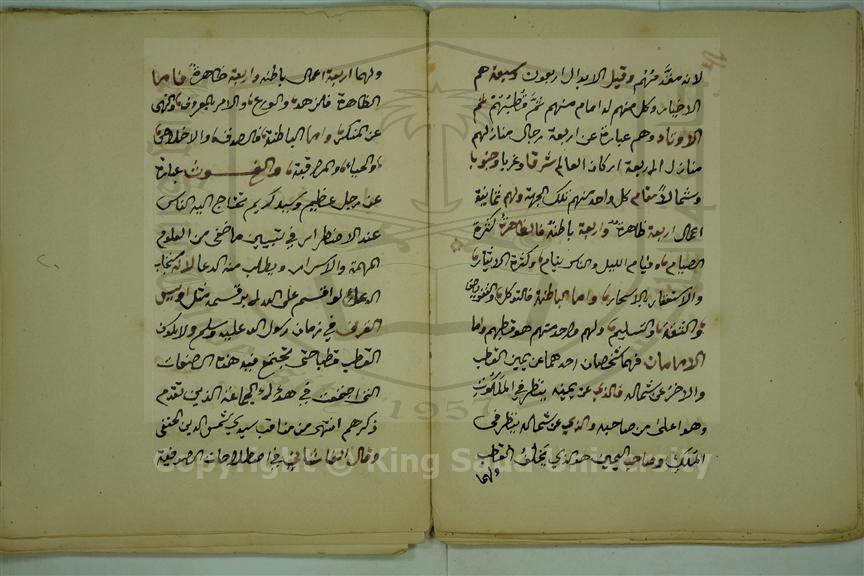 لانه مقدمهم وقيل الابدال اربعون وسبعة هم
الاخيار وكل منهم له امام منهم هو قطبهم ثم
الاوتاد وهم عبارة عن اربعة رجال منازلهم
منازل الاربعة اركان العالم شرقا وغربا وجنوبا
وشمالا مقام كل واحد منهم تلك الجهة ولهم ثمانية
اعمال اربعة ظاهرة واربعة باطنة فالظاهرة كثرة
الصيام وقيام الليل والناس نيام وكثرة الايثار
والاستغفار بالاسحار واما الباطنة فالتوكل والتفويض
والثقة والتسليم ولهم واحد منهم هو قطبهم واما
الامامان فهما شخصان احدهما عن يمين القطب
والاخر عن شماله فالذي عن يمينه ينظر في الملكوت
وهو اعلى من صاحبه والذي عن شماله ينظر في
الملك وصاحب اليمين هو الذي يخلف القطب
ولهما
ولهما اربعة اعمال باطنة واربعة ظاهرة فاما
الظاهرة فالزهد والورع والامر بالمعروف والنهى
عن المنكر واما الباطنة فالصدق والاخلاص
والحياء والمراقبة والغوث عبارة
عن رجل عظيم وسيد كريم تحتاج اليه الناس
عند الاضطرار في تبيين ما خفى من العلوم
المهمة والاسرار ويطلب منه الدعا لانه مستجاب
الدعاء لو اقسم على الله لبر قسمه مثل اويس
القرنى في زمان رسول الله عليه وسلم ولا يكون
القطب قطبا حتى تجتمع فيه هذه الصفات
التى اجتمعت في هؤلاء الجماعة الذين تقدم
ذكرهم انتهى من مناقب سيدي شمس الدين الحنفى
وقال القاشاني في اصطلاحات الصوفية
Copyright © King Saud University
1957